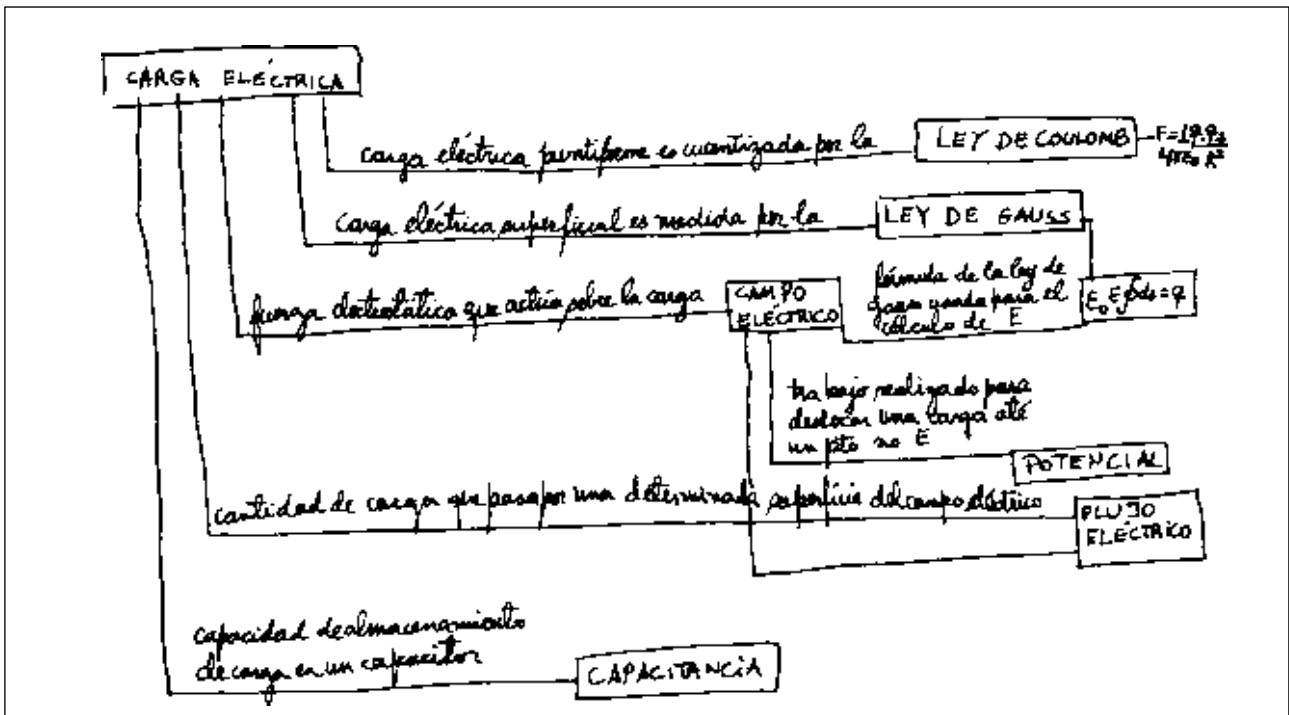 CARGA ELÉCTRICA
carga eléctrica puntiforme es cuantizada por la
LEY DE COULOMB
F = 1 q.q₂
4πε₀ R²
carga eléctrica superficial es medida por la
LEY DE GAUSS
fuerza electrostática que actúa sobre la carga
CAMPO
ELÉCTRICO
fórmula de la ley de
gauss usada para el
cálculo de E
ε₀ E∮ds = q
trabajo realizado para
deslocar una carga até
un pto no E
POTENCIAL
cantidad de carga que pasa por una determinada superficie del campo eléctrico
FLUJO
ELÉCTRICO
capacidad de almacenamiento
de carga en un capacitor
CAPACITANCIA